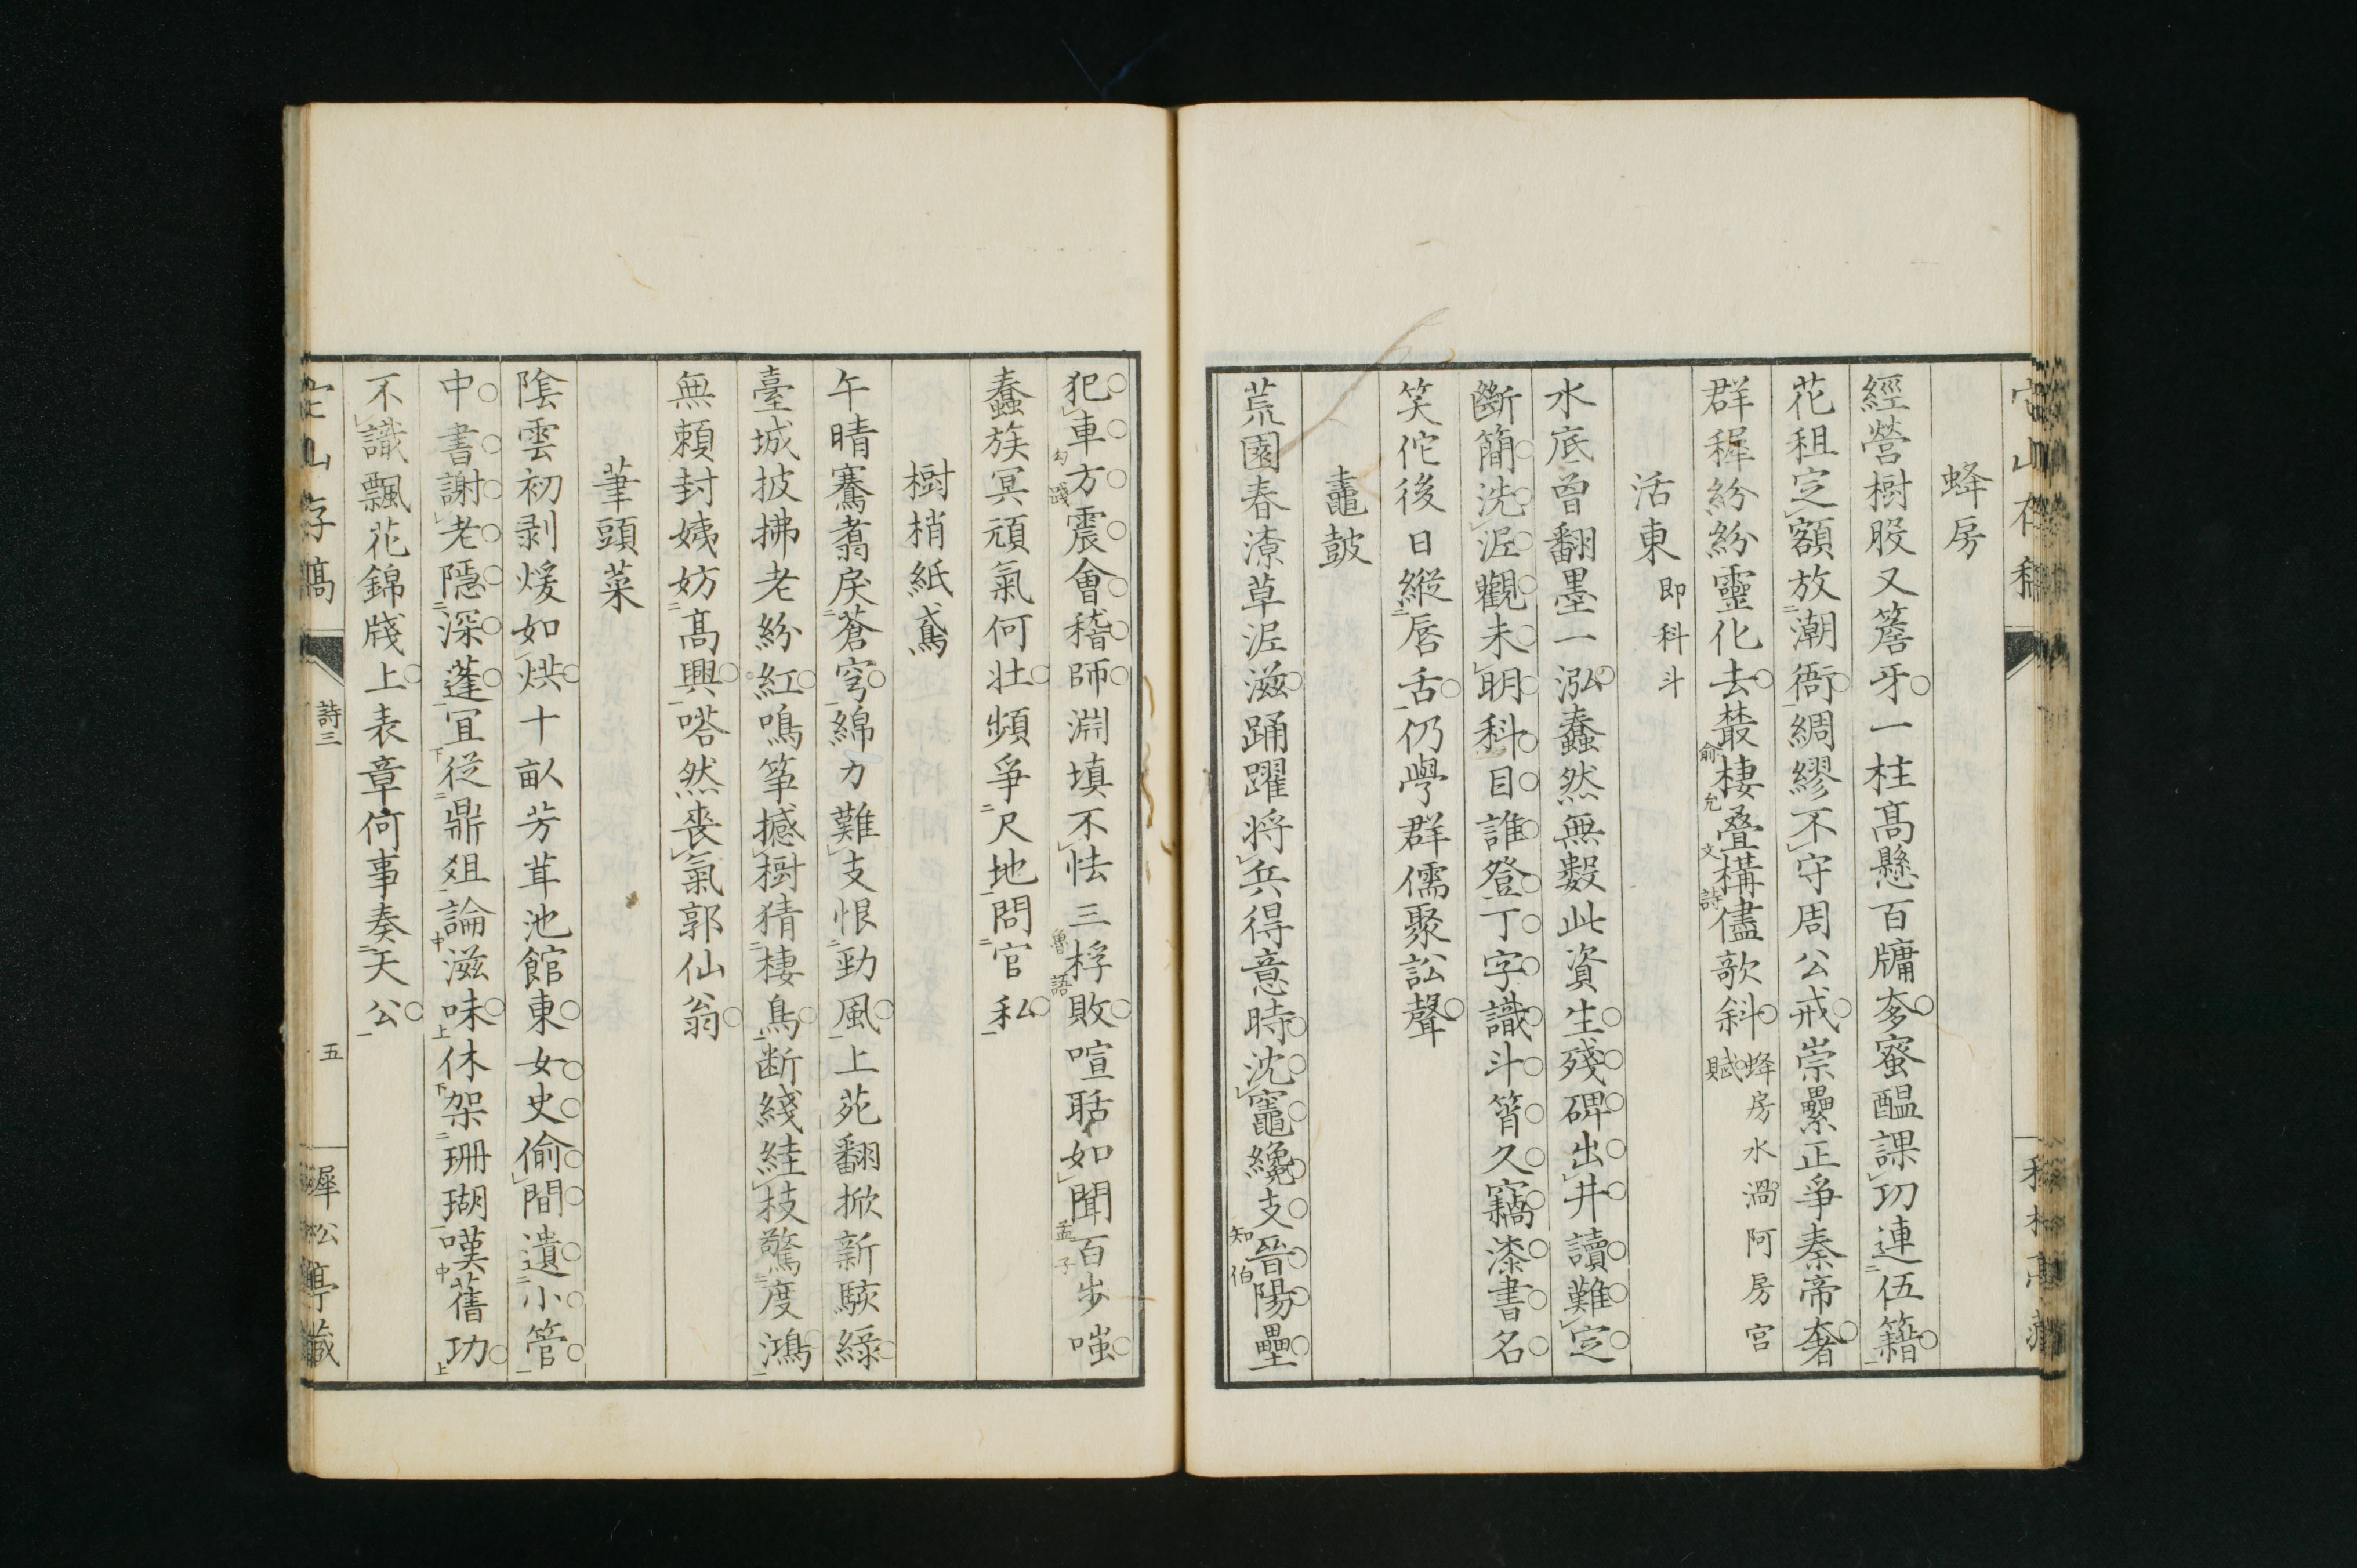 蜂房
經營樹股又簷牙一柱高懸百牗夛蜜醞課功連伍籍
花租定額放潮衙綢繆不守周公戒崇壘正爭秦帝奢
群穉紛紛靈化去藂棲叠構儘欹斜蜂房水渦阿房宮賦
俞允文詩
活東即科斗
水底曾翻墨一泓蠢然無數此資生殘碑出井讀難定
斷簡洗泥觀未明科目誰登丁字識斗筲久竊漆書名
笑佗後日縱唇舌仍學群儒聚訟聲
鼃鼓
荒園春潦草泥滋踊躍将兵得意時沈竈纔支晉陽壘
知伯
犯車方震會稽師淵填不怯三桴敗喧聒如聞百步嗤
勾踐
魯語
孟子
蠢族冥頑氣何壮頻爭尺地問官私
樹梢紙鳶
午晴騫翥戾蒼穹綿力難支恨勁風上苑翻掀新駭綠
臺城披拂老紛紅鳴筝撼樹猜棲鳥断綫絓枝驚度鴻
無賴封姨妨高興嗒然喪氣郭仙翁
筆頭菜
陰雲初剥煖如烘十畝芳茸池館東女史偷間遺小管
中書謝老隱深蓬宜從鼎俎論滋味休架珊瑚嘆舊功
不識飄花錦牋上表章何事奏天公
山存稿
詩三
五
犀松亭藏